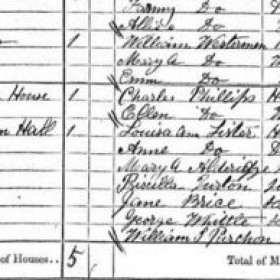 Fanny Do
Do
1 William Westerman
Mary A Do
Emm Do
House 1 Charles Phillips H
Ellen Do
Hall 1 Louisa Ann Lister
Anne Do
Mary A Alderidge
Priscilla Gurton
Jane Brice
George Whittle
William S Purchon
of Houses.. 5 Total of M